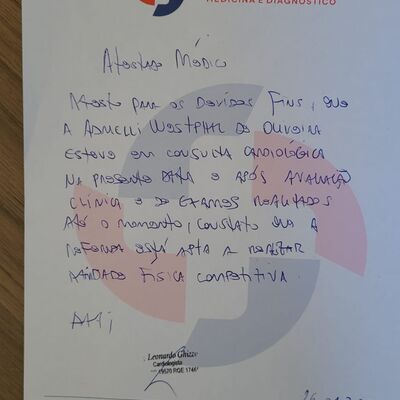 MEDICINA E DIAGNÓSTICO
Atestado Médico
Atesto para os Devidos Fins, que
A Adrielli Westphal de Oliveira
esteve em consulta cardiológica
na presente data e após avaliação
clínica e de exames realizados
até o momento, constato que a
referida está apta a realizar
atividade física competitiva.
Att;
Leonardo Ghizzo
Cardiologista
RQE